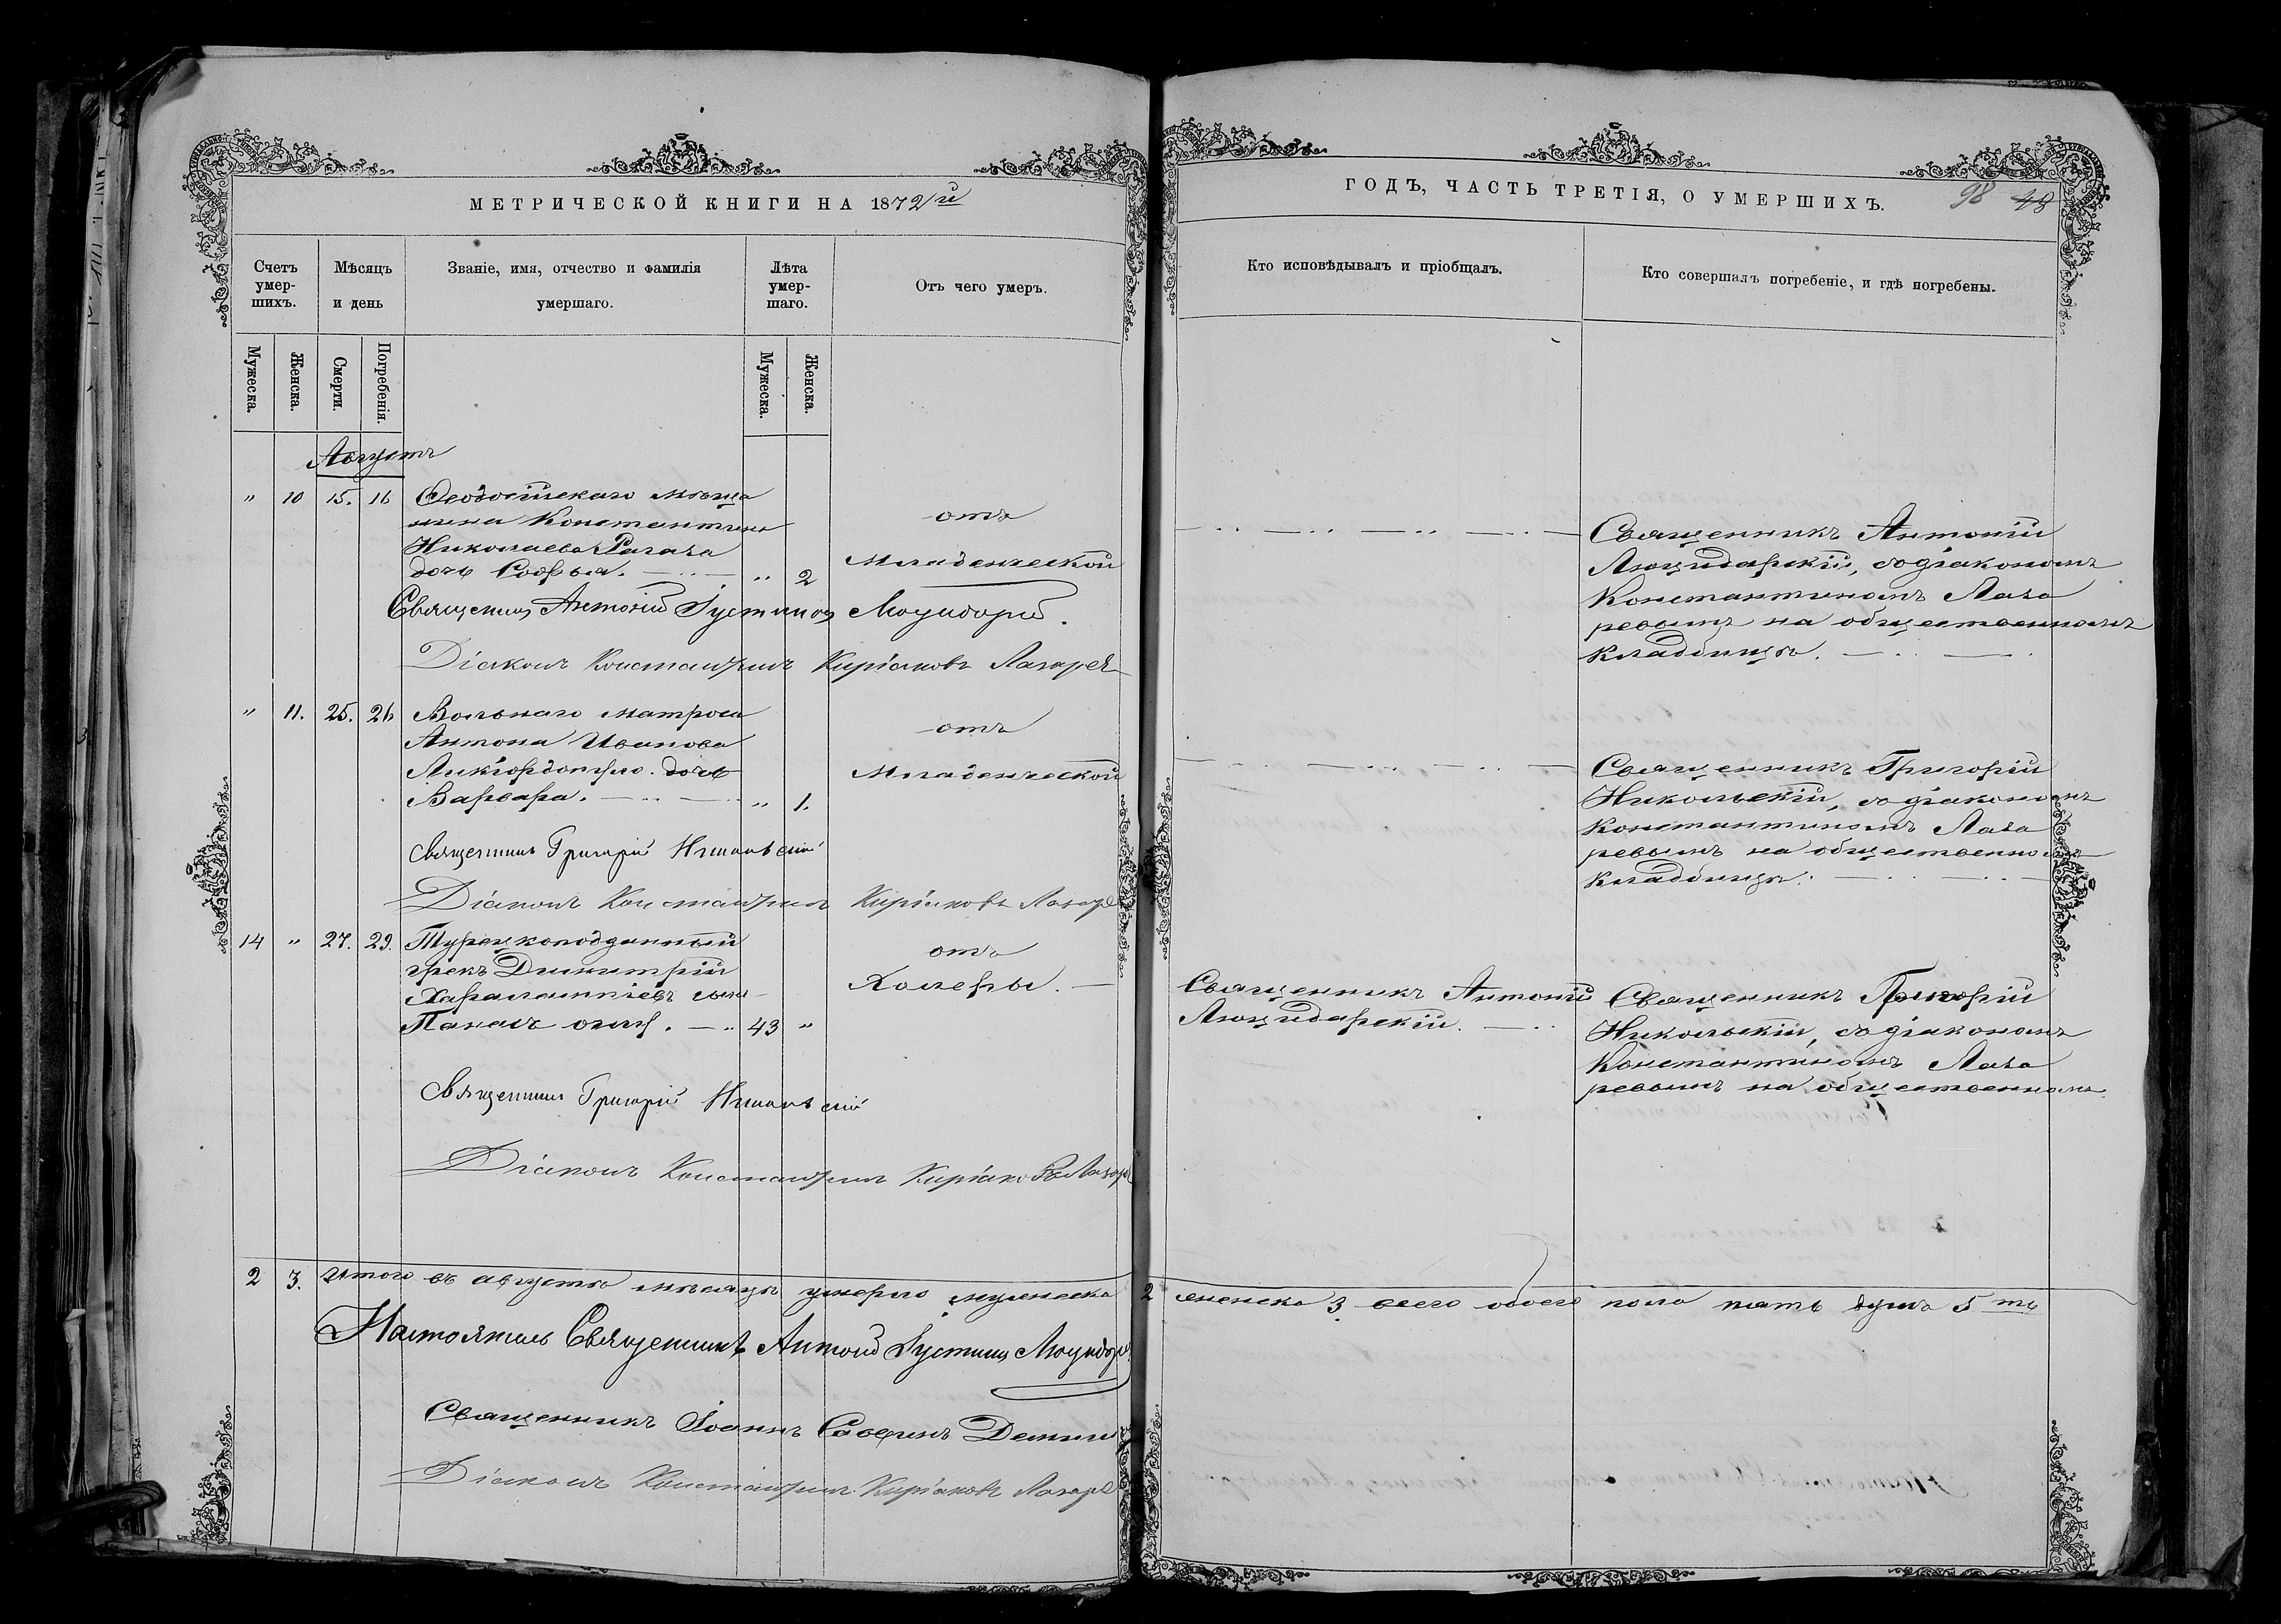 МЕТРИЧЕСКОЙ КНИГИ НА 1872й
Счетъ умер-шихъ.
Мѣсяцъ и день
Званіе, имя, отчество и фамилія умершаго.
Лѣта умер-шаго.
Отъ чего умеръ.
Мужеска.
Женска.
Смерти.
Погребенія.
Мужеска.
Женска.
Августъ
" 10 15. 16 Ѳеодосійскаго мѣща
нина Константина
Николаева Рагаза
дочь Софья. " 2
отъ
младенческой
Священникъ Антоній Іустиновъ
Діаконъ Константинъ Киріаковъ Лазарев
" 11. 25. 26 Вольнаго матроса
Антона Иванова
дочь
Варвара. " 1.
отъ
Младенческой
Священникъ Григорій Никольскій
Діаконъ Константинъ Киріаковъ Лазаре
14 " 27. 29. Турецкоподданный
грекъ Димитрій
Харалампіевъ сынъ
43 "
отъ
Холеры.
Священникъ Григорій Никольскій
Діаконъ Константинъ Киріаковъ Лазаре
2 3. Итого въ августѣ мѣсяцѣ умерло мужеска
Настоятель Священникъ Антоній Іустиновъ
Священникъ Іоаннъ Саввинъ
Діаконъ Константинъ Киріаковъ Лазаре
ГОДЪ, ЧАСТЬ ТРЕТІЯ, О УМЕРШИХЪ.
98 49
Кто исповѣдывалъ и пріобщалъ.
Кто совершалъ погребеніе, и гдѣ погребены.
Священникъ Антоній
Люцидарскій, со діакономъ
Константиномъ Лаза
ревымъ на общественномъ
кладбищѣ.
Священникъ Григорій
Никольскій, со діакономъ
Константиномъ Лаза
ревымъ на общественномъ
кладбищѣ.
Священникъ Антоній
Люцидарскій.
Священникъ Григорій
Никольскій, со діакономъ
Константиномъ Лаза
ревымъ на общественномъ
2 женска 3 всего обоего пола пять душъ 5 ть